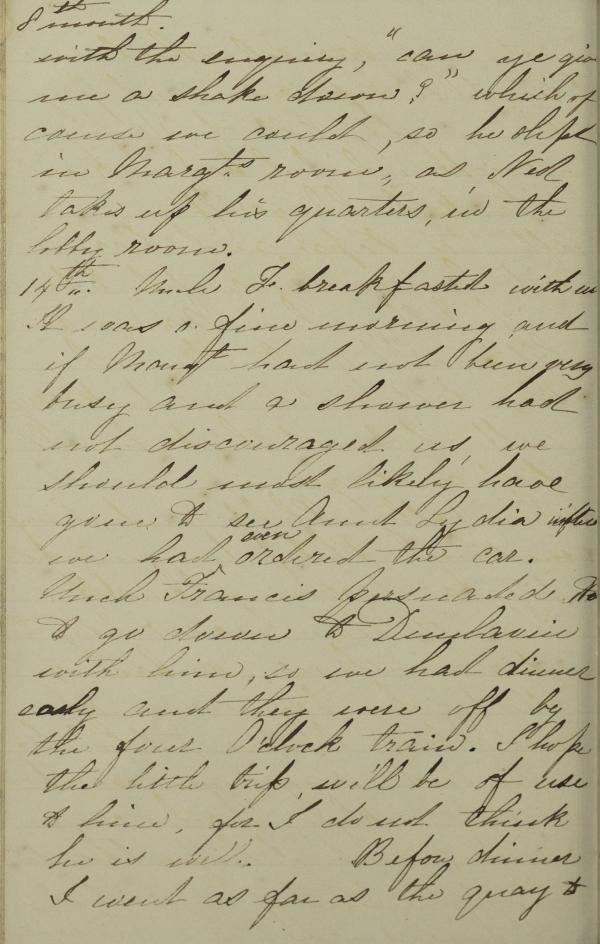 8th month.
with the enquiry, "can ye give
me a shake down?" which of
course we could, so he slept
in Margt's room, as Ned
takes up his quarters, in the
lobby room.
14th. Uncle F. breakfasted with us
It was a fine morning and
if Margt had not been very
busy and a shower had
not discouraged us, we
should most likely have
gone to see Aunt Lydia
we had even ordered the car.
Uncle Francis persuaded
to go down to Dunlavin
with him, so we had dinner
early and they were off by
the four O'clock train. I hope
the little trip will be of use
to him, for I do not think
he is well. Before dinner
I went as far as the quay to